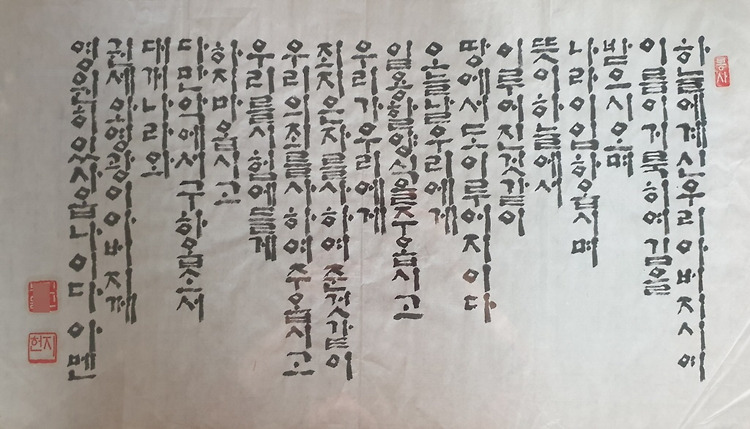 하늘에계신우리아바지시여
이름이거룩히여김을
받으시오며
나라이임하옵시며
뜻이하늘에서
이루어진것같이
땅에서도이루어지이다
오늘날우리에게
일용할양식을주옵시고
우리가우리에게
죄지은자를사하여준것같이
우리의죄를사하여주옵시고
우리를시험에들게
하지마옵시고
다만악에서구하옵소서
대개나라와
권세와영광이아바지께
영원히있사옵나이다 아멘
지헌